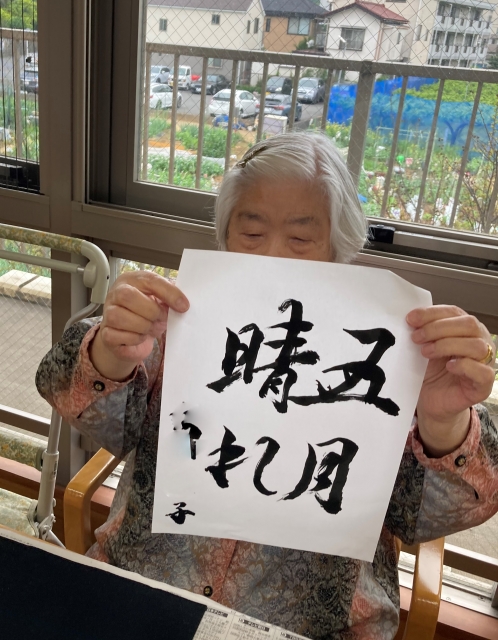 五月
晴れ
子